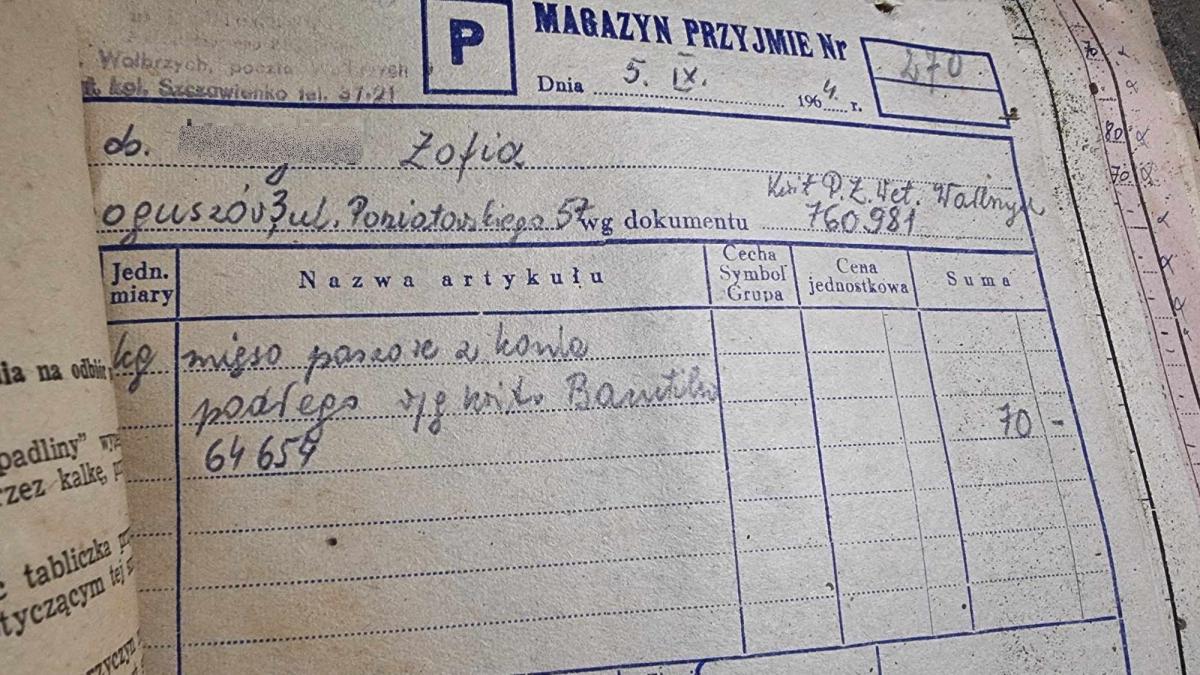 Wałbrzych, poczta Wałbrzych
st. kol. Szczawienko tel. 37-21
P
MAGAZYN PRZYJMIE Nr 270
Dnia 5. IX. 1964 r.
ob. Zofia
oguszów 3 ul. Poniatowskiego 57 wg dokumentu
Kwit P.Z. Wet. Wałbrzych
760981
Jedn. miary
Nazwa artykułu
Cecha Symbol Grupa
Cena jednostkowa
Suma
kg mięso paszowe z konia
padłego w/g kwit.
64 654
70 -
nia na odbiór
padliny" wy
rzez kalkę, p
ć tabliczka pr
tyczącym tej s
rzyczyn
70
80
70